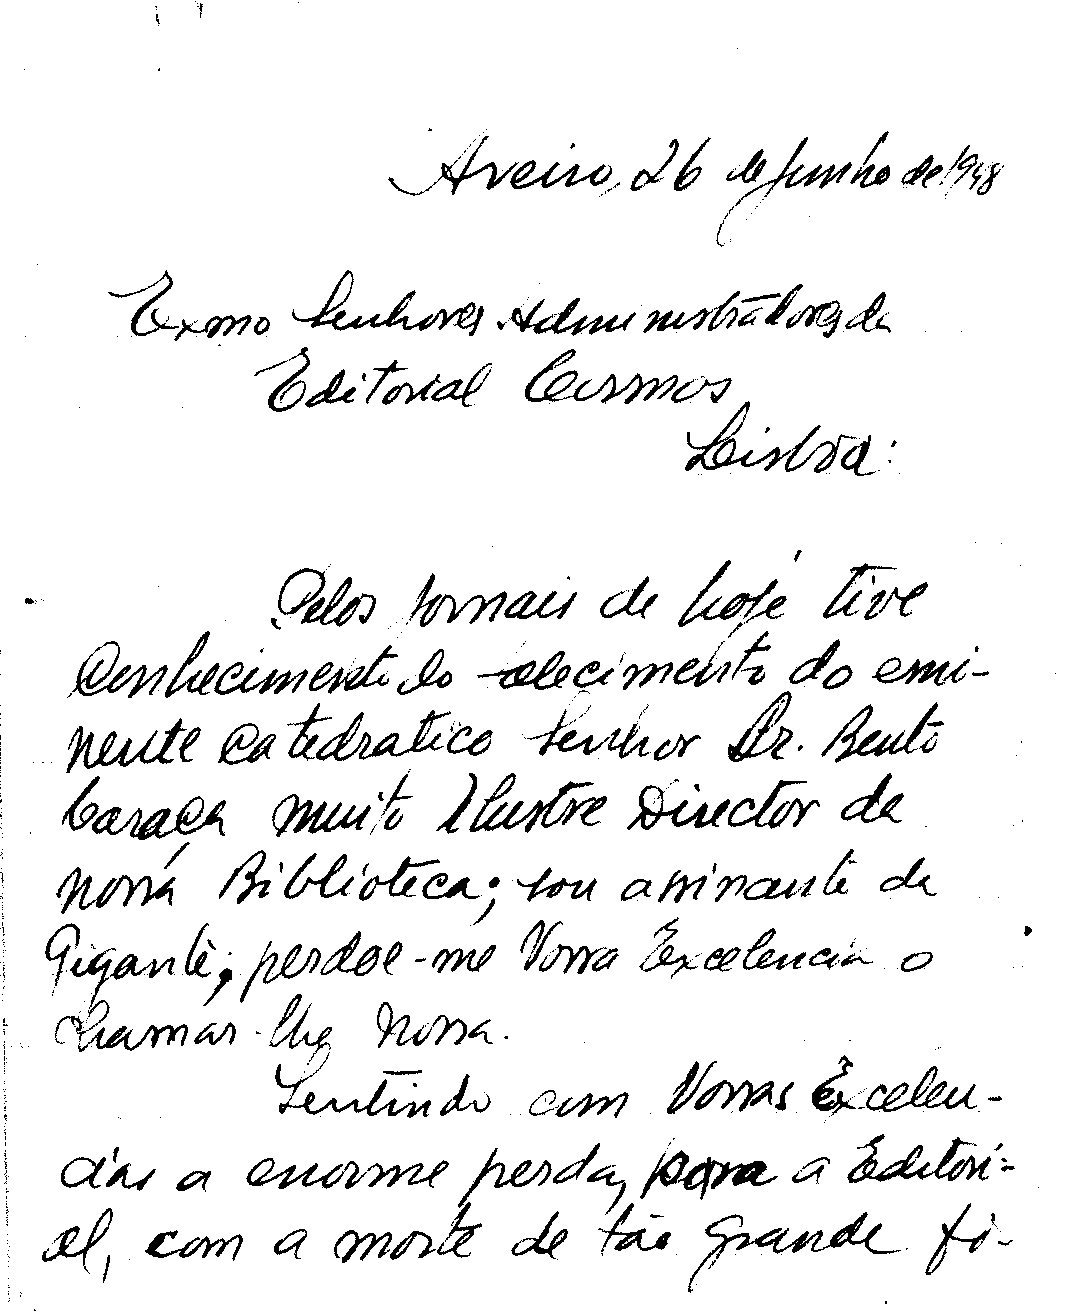 Aveiro, 26 de Junho de 1948
Exmo Senhores Administradores da
Editorial Cosmos
Lisboa:
Pelos jornais de hoje tive
Conhecimento do falecimento do emi-
nente Catedratico Senhor Dr. Bento
Caraça muito Ilustre Director da
nossa Biblioteca; sou assinante da
Gigante; perdoe-me Vossa Excelencia o
chamar-lhe nossa.
Sentindo com Vossas Excelen-
cias a enorme perda, para a Editori-
al, com a morte de tão grande fi-